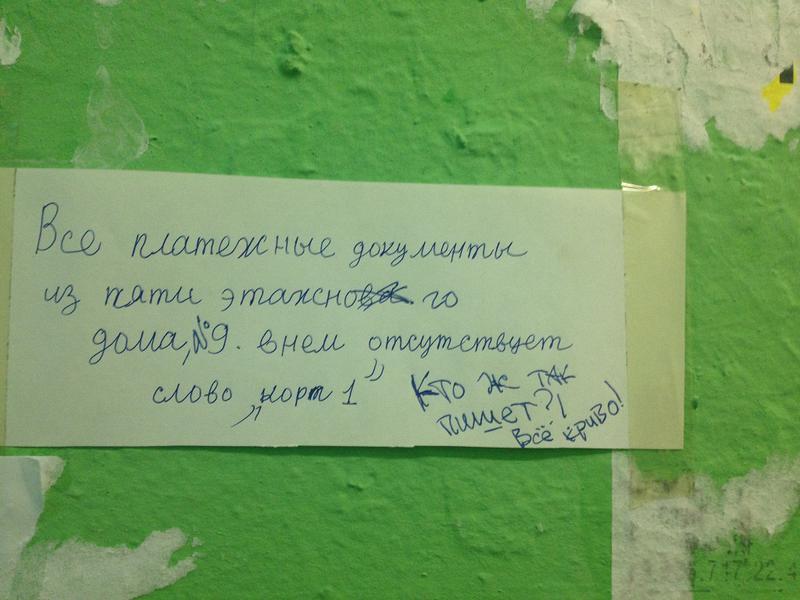 Все платежные документы
из пяти этажно го
дома, №9. внем отсутствует
слово „корп 1”
Кто ж так
пишет?!
Всё криво!
.717 22.4